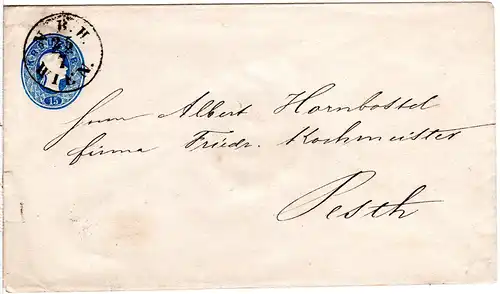 N. B. H.
23
7
WIEN.
15
Herrn Albert Hornbostel
firma Friedr. Kochmeister
Pesth